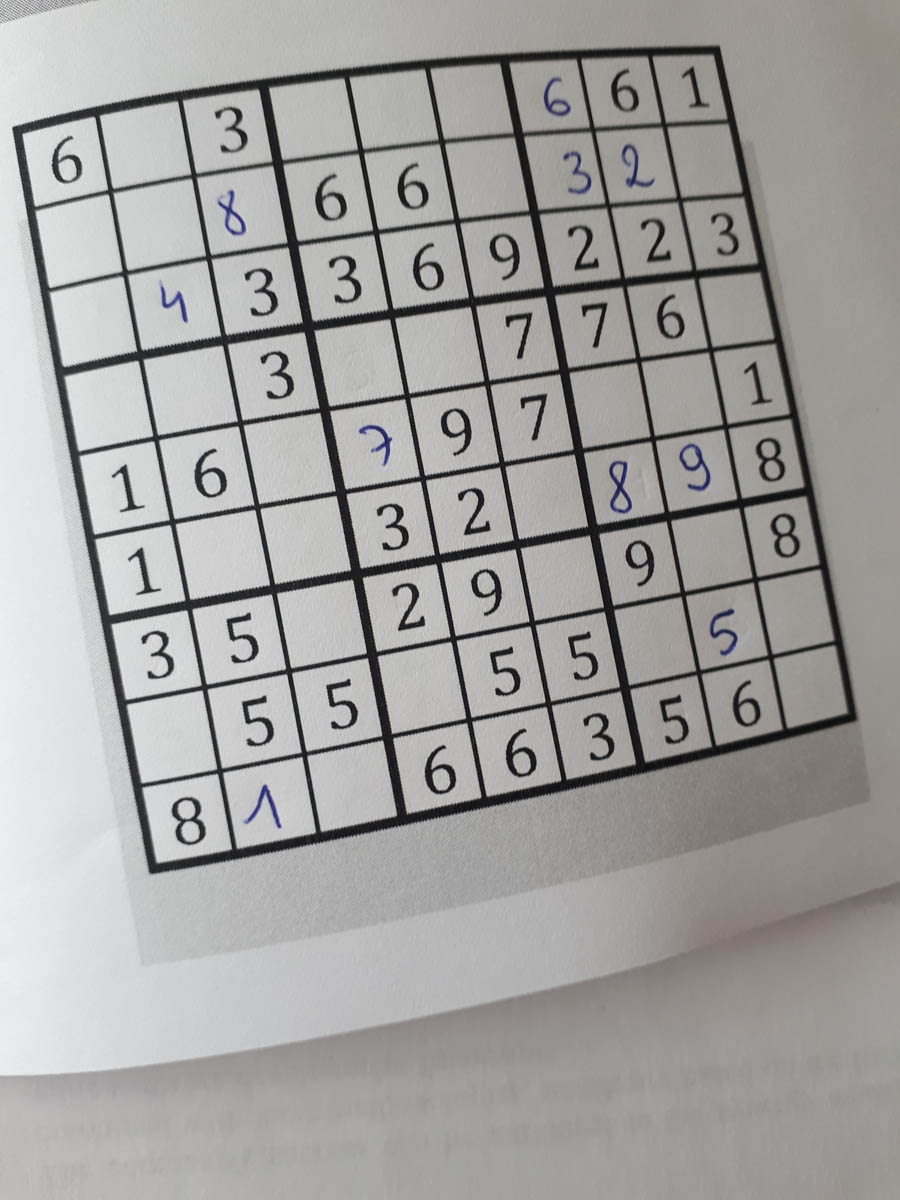 6 3 6 6 1
8 6 6 3 2
4 3 3 6 9 2 2 3
3 7 7 6
1 6 7 9 7 1
1 3 2 8 9 8
3 5 2 9 9 8
5 5 5 5 5
8 1 6 6 3 5 6